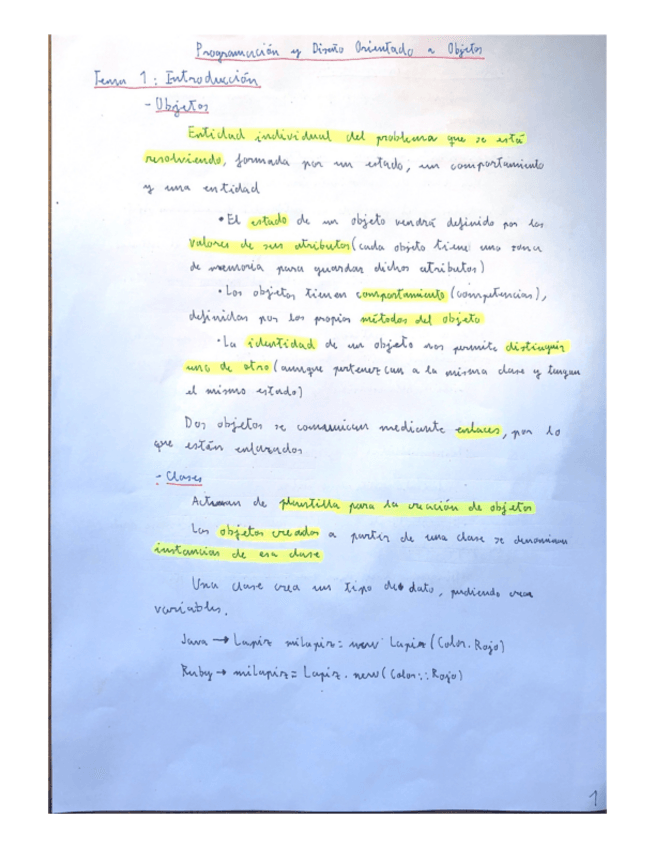 Programación y Diseño Orientado a Objetos
Tema 1: Introducción
- Objetos
Entidad individual del problema que se está
resolviendo, formada por un estado, un comportamiento
y una entidad
• El estado de un objeto vendrá definido por los
valores de sus atributos (cada objeto tiene una zona
de memoria para guardar dichos atributos)
• Los objetos tienen comportamiento (competencias),
definidas por los propios métodos del objeto
• La identidad de un objeto nos permite distinguir
uno de otro (aunque pertenezcan a la misma clase y tengan
el mismo estado)
Dos objetos se comunican mediante enlaces, por lo
que están enlazados
- Clases
Actuan de plantilla para la creación de objetos
Los objetos creados a partir de una clase se denominan
instancias de esa clase
Una clase crea un tipo de dato, pudiendo crear
variables.
Java → Lapiz miLapiz = new Lapiz (Color.Rojo)
Ruby → miLapiz = Lapiz.new (Color::Rojo)
1